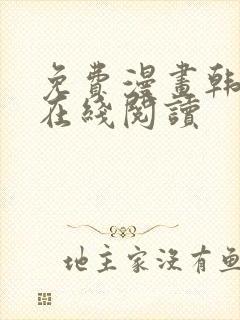 免費漫畫韩
在綫閱讀
地主家沒有魚